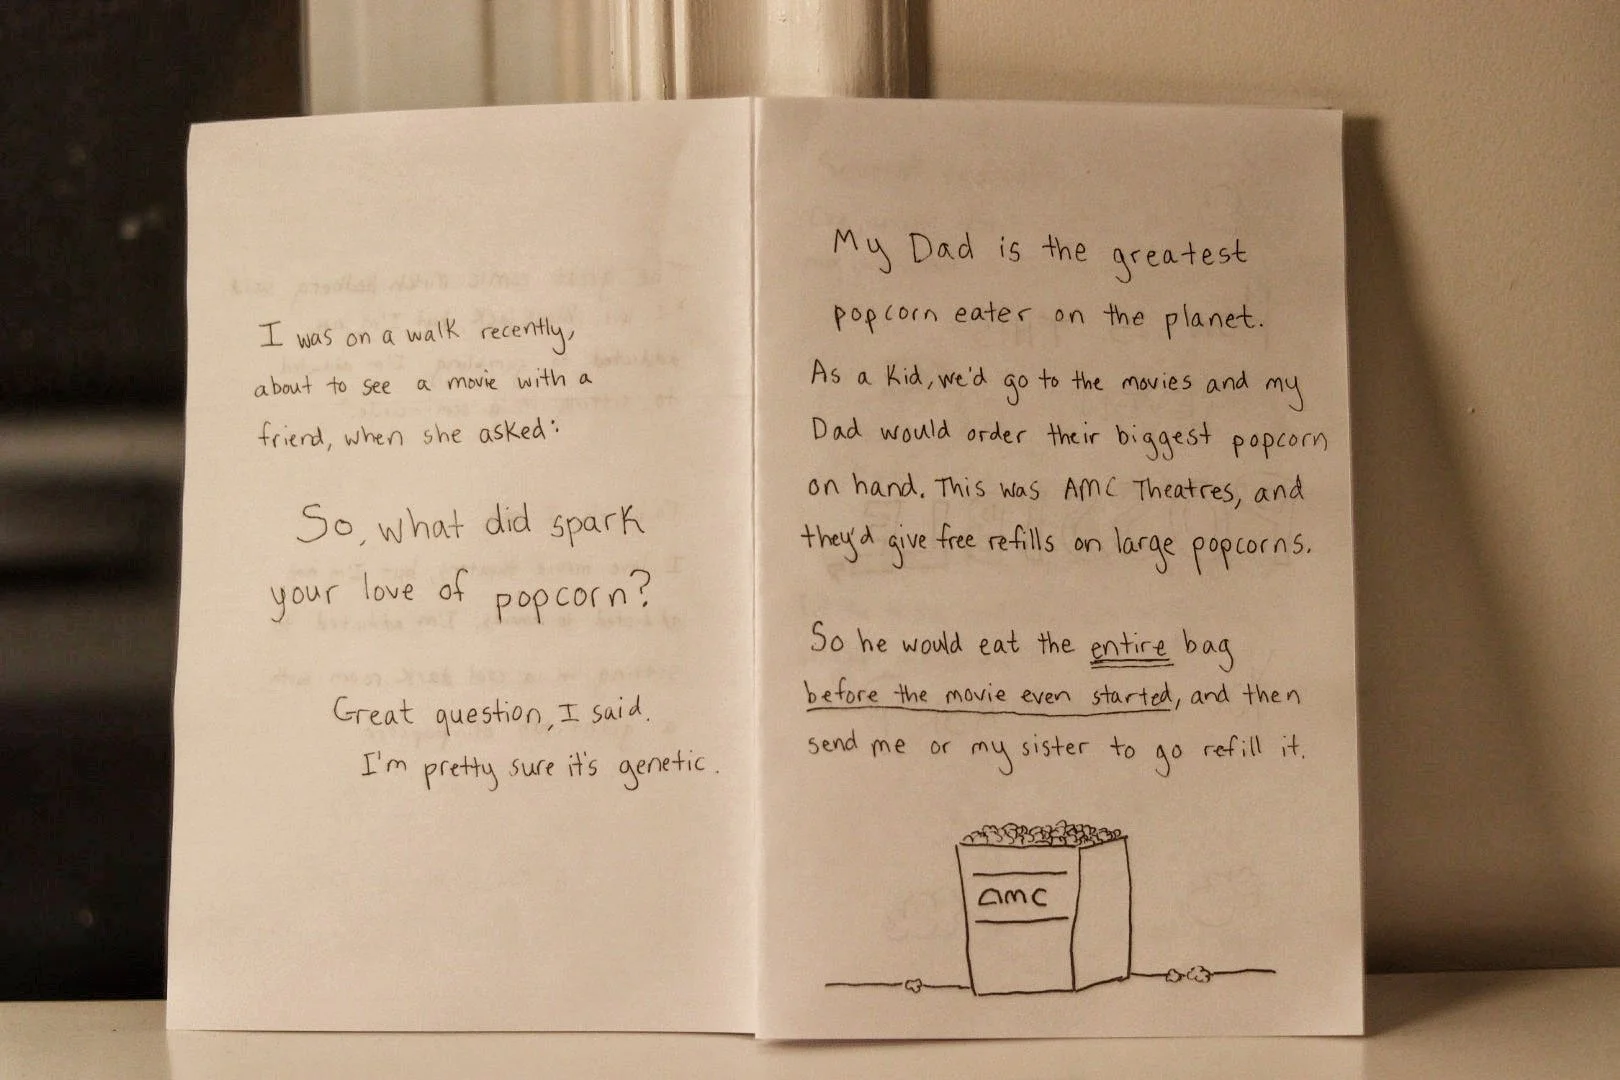 I was on a walk recently,
about to see a movie with a
friend, when she asked:
So, what did spark
your love of popcorn?
Great question, I said.
I'm pretty sure it's genetic.
My Dad is the greatest
popcorn eater on the planet.
As a kid, we'd go to the movies and my
Dad would order their biggest popcorn
on hand. This was AMC Theatres, and
they'd give free refills on large popcorns.
So he would eat the entire bag
before the movie even started, and then
send me or my sister to go refill it.
amc